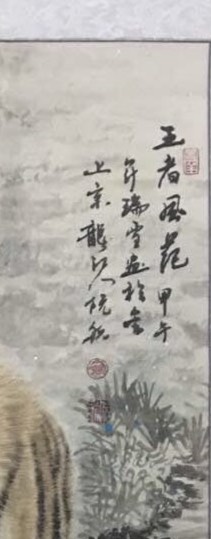 王者风范 甲午
年瑞雪画於金
上京龙江阮航